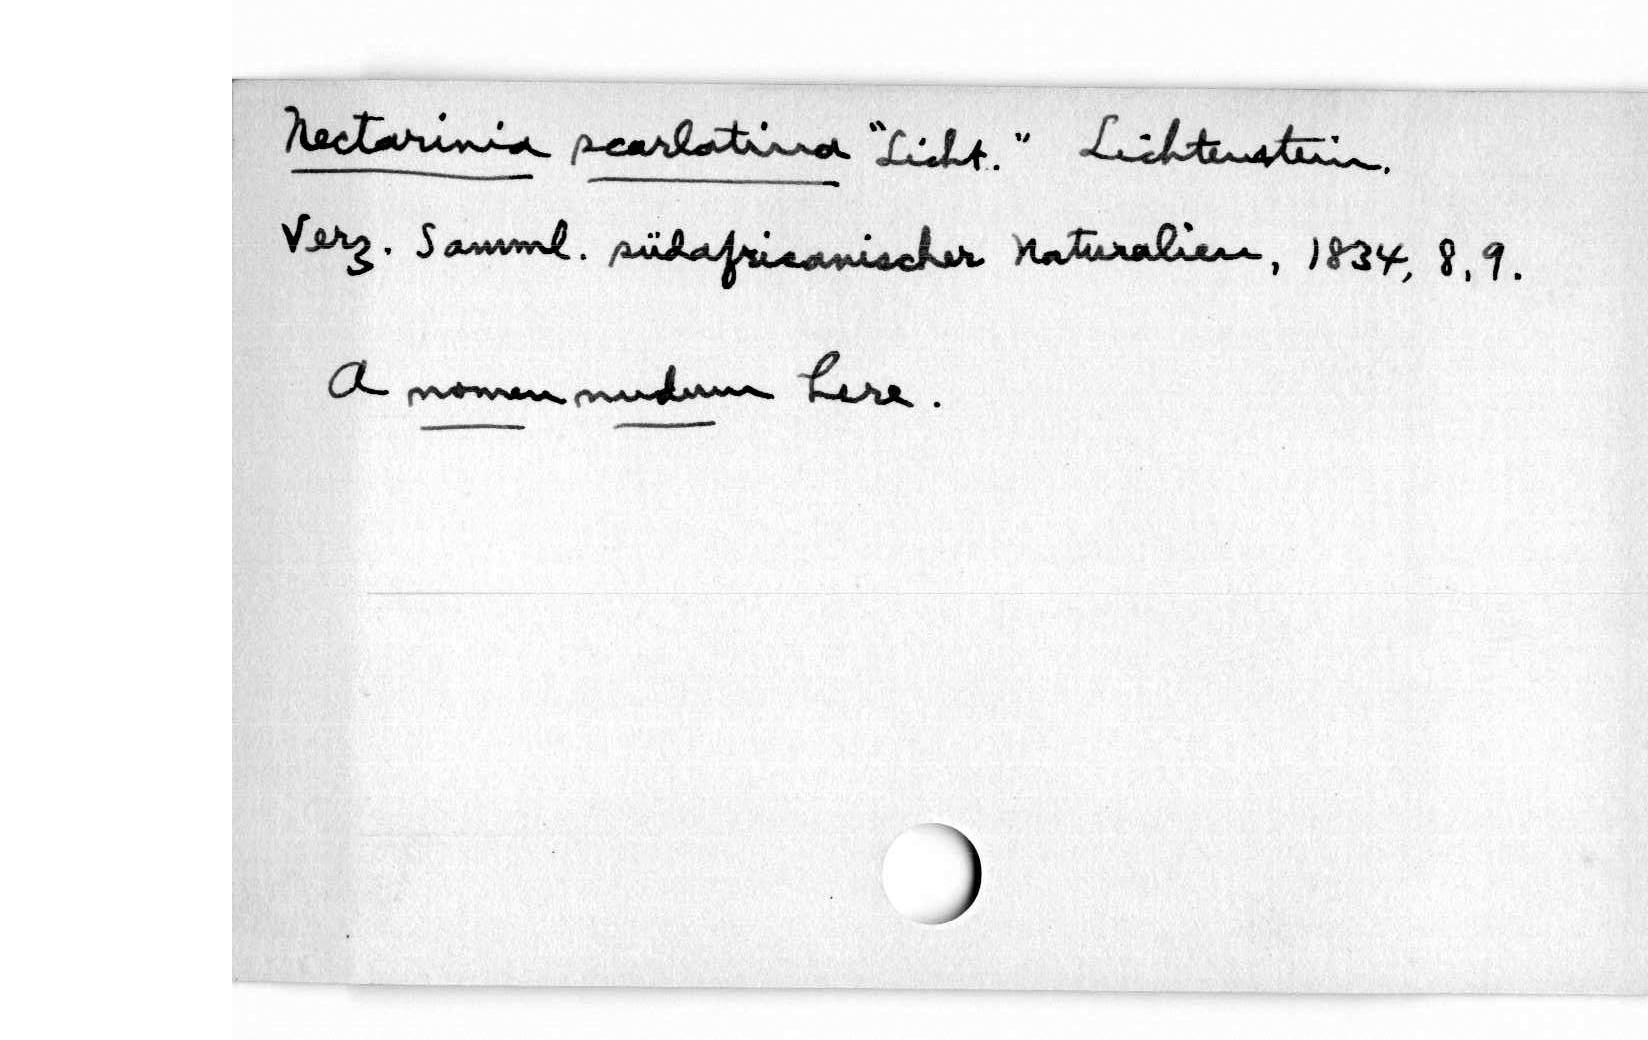 Nectarinia scarlatina "Licht." Lichtenstein.
Verz. Samml. südafricanischer Naturalien, 1834, 8, 9.
A nomen nudum here.